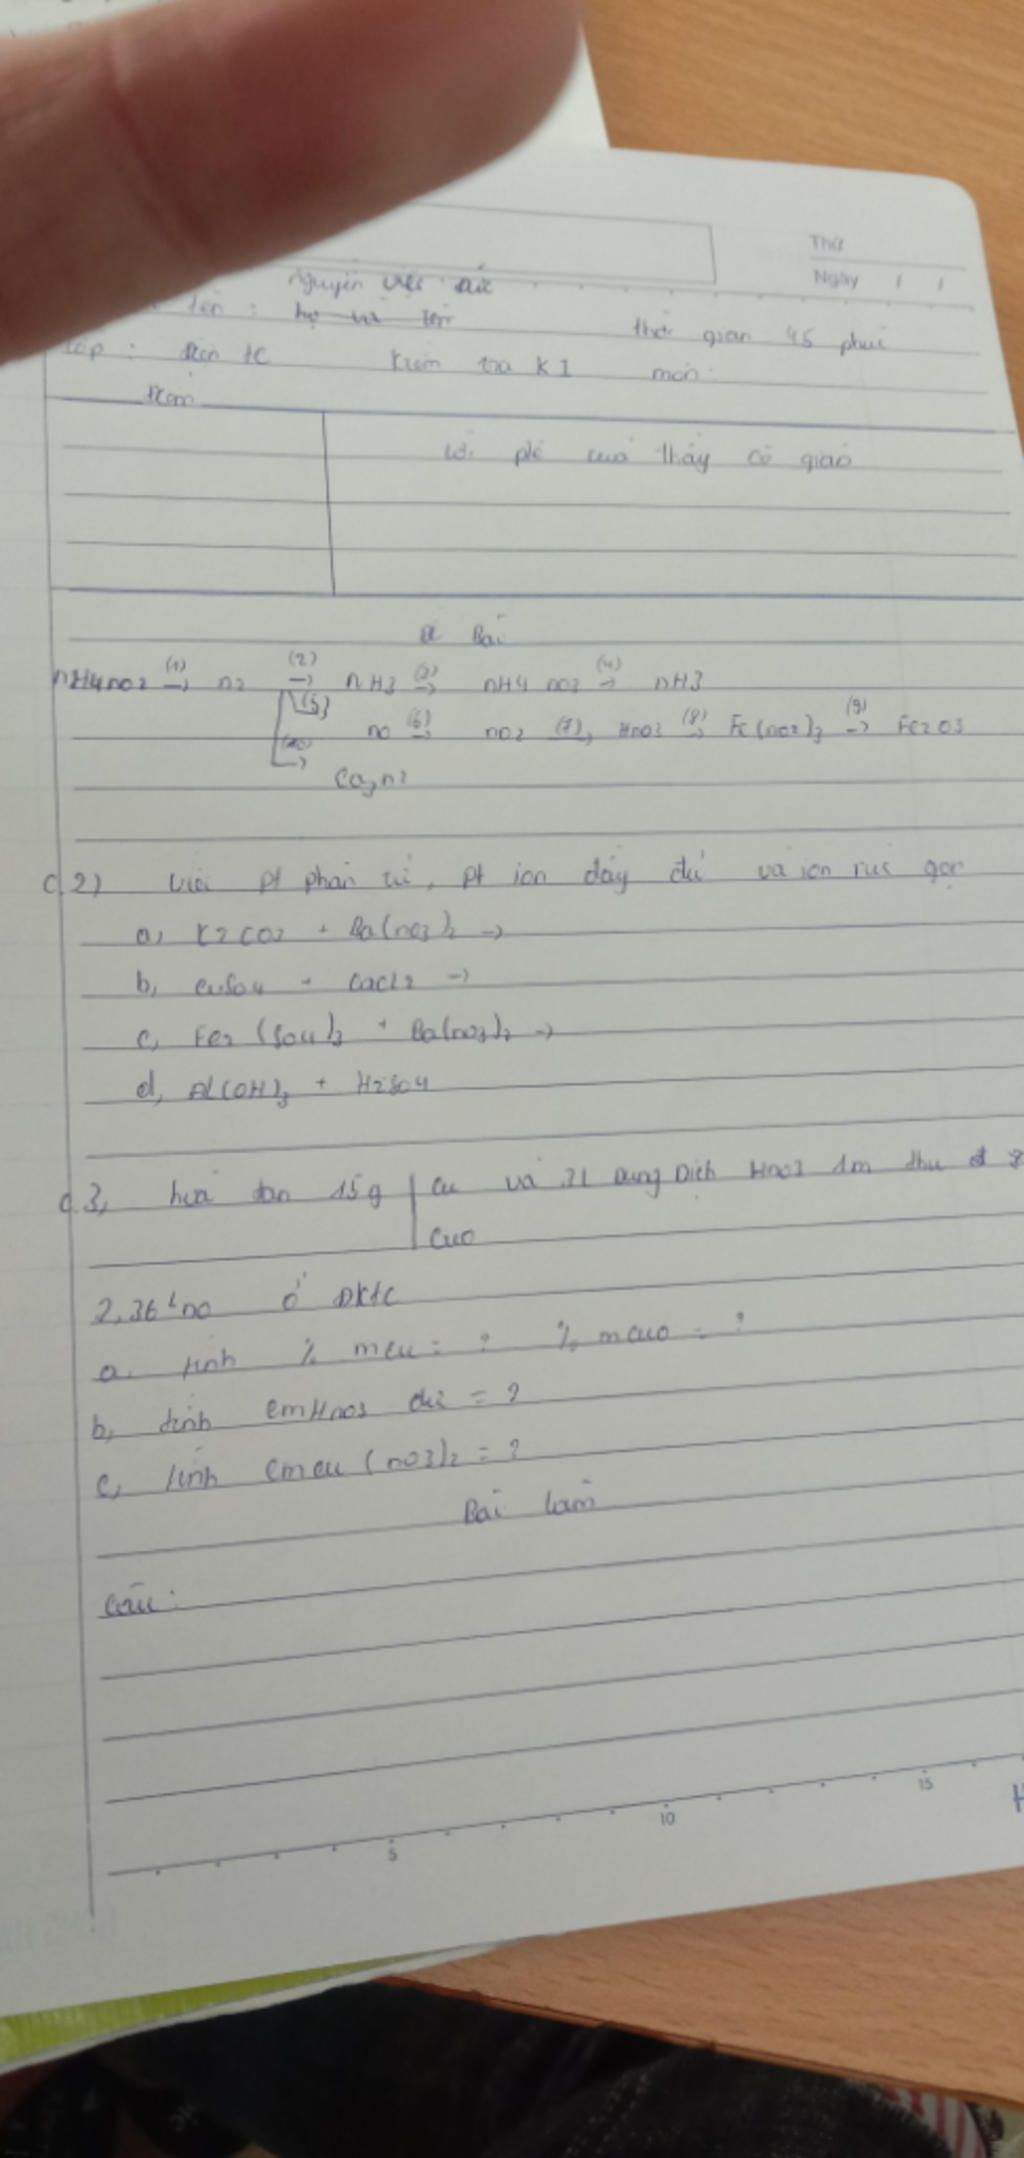 Thứ
Ngày / /
nguyễn việt đức
tên : họ và tên thời gian 45 phút
lớp : điện tC kiểm tra K I môn
điểm
lời phê cuả thầy cô giáo
đề Bài
nH4no2 (1)→ n2 (2)→ nH3 (3)→ nH4 no3 (4)→ nH3
(5) no (6)→ no2 (7)→ Hno3 (8)→ Fe(no3)3 (9)→ Fe2O3
(10)→ Ca3n2
c.2) viết pt phân tử, pt ion đầy đủ và ion rút gọn
a, K2CO3 + Ba(no3)2 →
b, CuSo4 + CaCl2 →
c, Fe2 (So4)3 + Ba(no3)2 →
d, Al(OH)3 + H2SO4
c.3, hoà tan 15g Cu và 3l Dung Dịch Hno3 1m thu đ
Cuo
2,36 L no ở Dktc
a. tính % mcu = ? % mcuo = ?
b, tính CmHno3 dư = ?
c, tính Cmcu (nO3)2 = ?
Bài làm
câu :
5 10 15
H